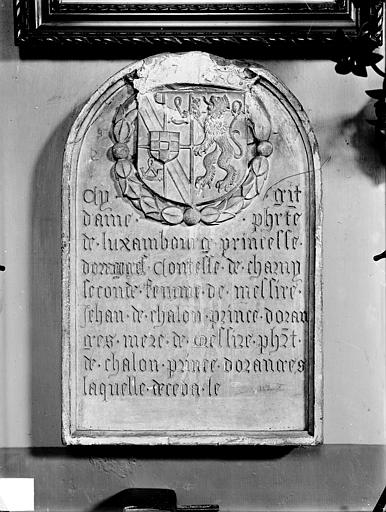 Cy git
dame phrte
de luxambourg princesse
dorages contesse de charny
seconde femme de messire
Jehan de chalon prince doran
ges mere de messire phrt
de chalon prince doranges
laquelle deceda le